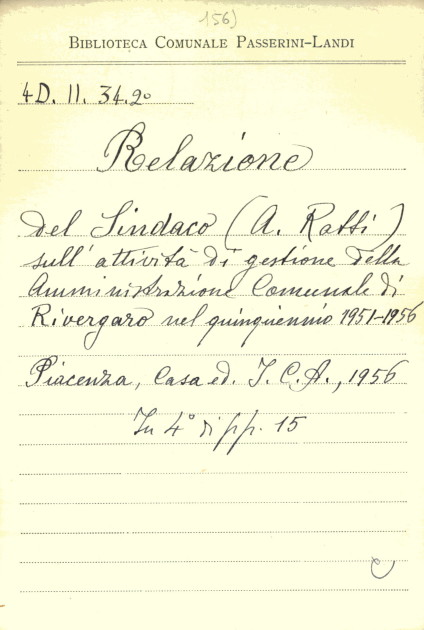 156)
BIBLIOTECA COMUNALE PASSERINI-LANDI
4D. II. 34.2º
Relazione
del Sindaco (A. Ratti)
sull'attività di gestione della
Amministrazione Comunale di
Rivergaro nel quinquennio 1951-1956
Piacenza, Casa ed. I.C.A., 1956
In 4º di pp. 15